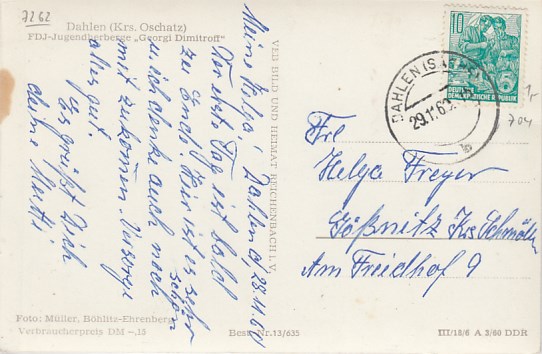 7262
Dahlen (Krs. Oschatz)
FDJ-Jugendherberge „Georgi Dimitroff"
Meine Helga! Dahlen d, 28.11.60
Der erste Tag ist bald
zu Ende. Hier ist es sehr schön
u. ich denke auch noch
mit zukommen. Vorsorge
alles gut.
Es grüßt Dich
deine
VEB BILD UND HEIMAT REICHENBACH I. V.
10
DEUTSCHE
DEMOKRATISCHE REPUBLIK
DAHLEN (SACHS)
29.11.60
b
1,-
704
Frl
Helga Freyer
Gößnitz Krs Schmölln
Am Freidhof 9
Foto: Müller, Böhlitz-Ehrenberg
Verbraucherpreis DM -,15
Best.-Nr. 13/635
III/18/6 A 3/60 DDR